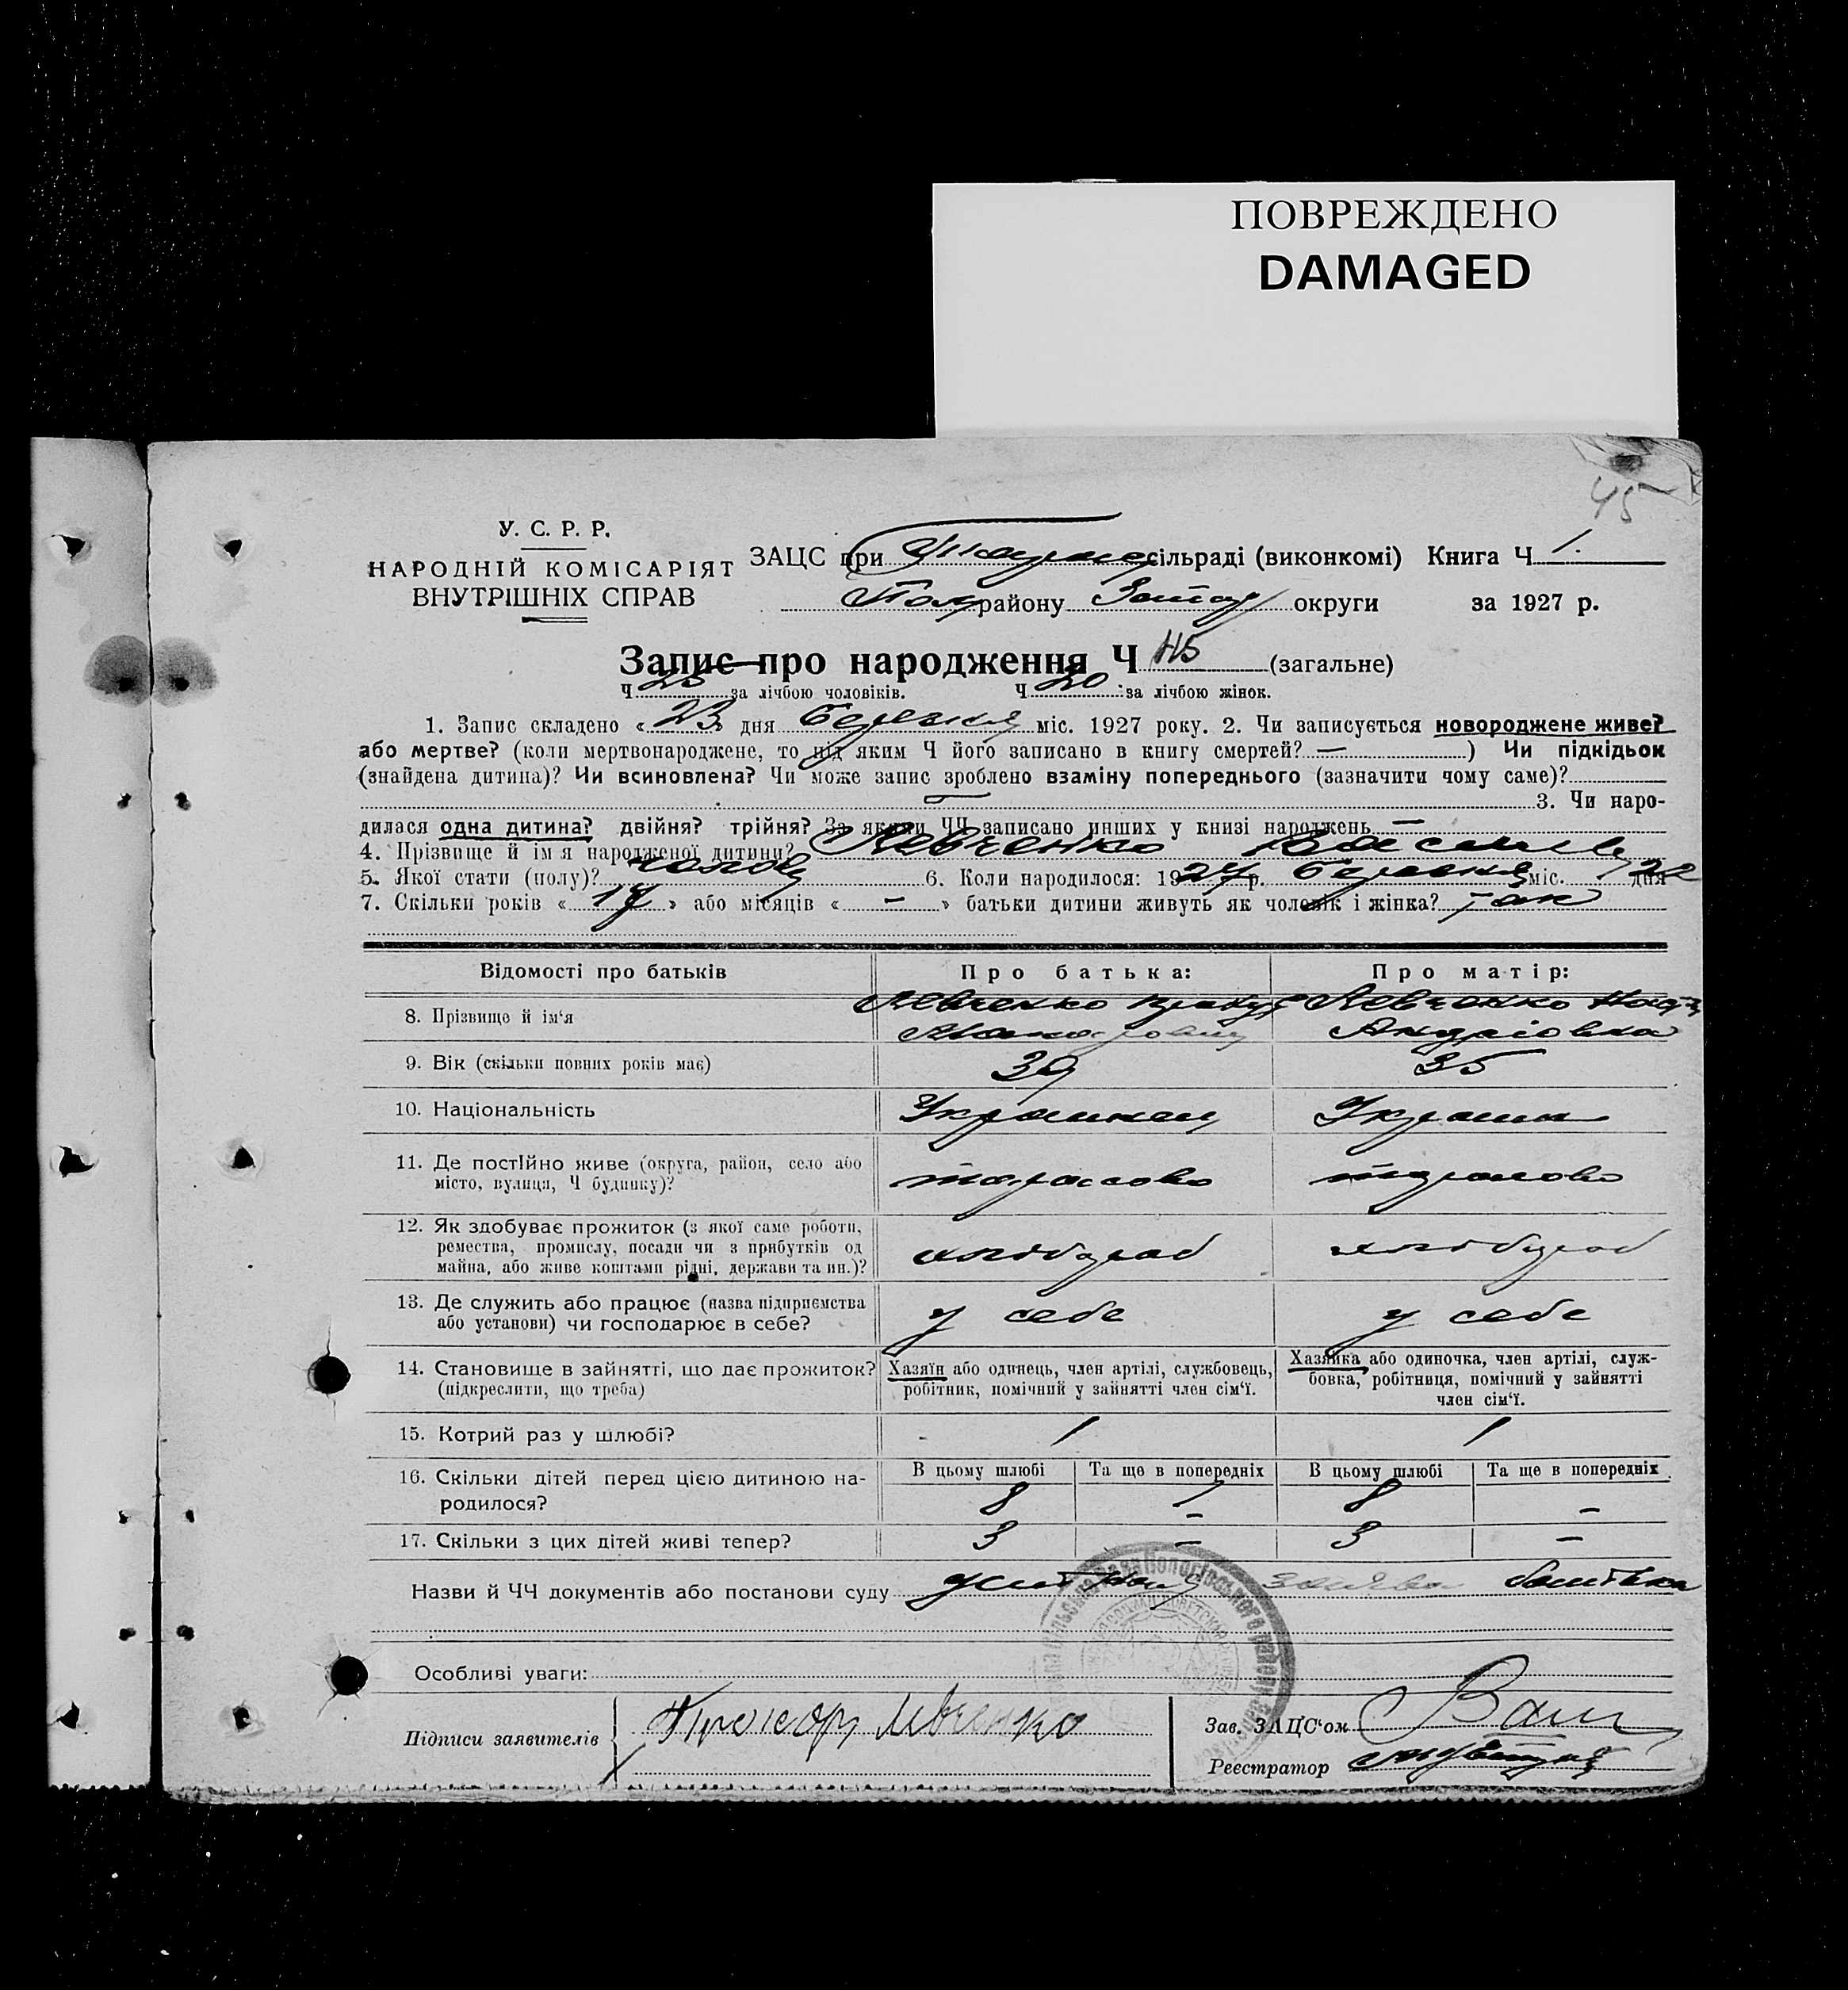 ПОВРЕЖДЕНО
DAMAGED
45
У. С. Р. Р.
НАРОДНІЙ КОМІСАРІЯТ
ВНУТРІШНІХ СПРАВ
ЗАЦС при сільраді (виконкомі) Книга Ч 1.
Пол району Запор округи за 1927 р.
Запис про народження Ч 45 (загальне)
Ч 25 за лічбою чоловіків. Ч 20 за лічбою жінок.
1. Запис складено « 23 » дня березня міс. 1927 року. 2. Чи записується новороджене живе?
або мертве? (коли мертвонароджене, то під яким Ч його записано в книгу смертей? — ) Чи підкідьок
(знайдена дитина)? Чи всиновлена? Чи може запис зроблено взаміну попереднього (зазначити чому саме)?
— 3. Чи наро-
дилася одна дитина? двійня? трійня? За якими ЧЧ записано инших у книзі народжень —
4. Прізвище й ім'я народженої дитини? Левченко
5. Якої стати (полу)? чолов 6. Коли народилося: 1927 р. березня міс. 22 дня
7. Скільки років « 17 » або місяців « - » батьки дитини живуть як чоловік і жінка? так
Відомості про батьків Про батька: Про матір:
8. Прізвище й ім'я Левченко Левченко
Андріовна
9. Вік (скільки повних років має) 39 35
10. Національність Украинець Украин
11. Де постійно живе (округа, район, село або
місто, вулиця, Ч будинку)? тарасовка
12. Як здобуває прожиток (з якої саме роботи,
ремества, промислу, посади чи з прибутків од
майна, або живе коштами рідні, держави та ин.)? хлібороб хлібороб
13. Де служить або працює (назва підприємства
або установи) чи господарює в себе? у себе у себе
14. Становище в зайнятті, що дає прожиток?
(підкреслити, що треба)
Хазяїн або одинець, член артілі, службовець,
робітник, помічний у зайнятті член сім'ї.
Хазяйка або одиночка, член артілі, служ-
бовка, робітниця, помічний у зайнятті
член сім'ї.
15. Котрий раз у шлюбі? 1 1
16. Скільки дітей перед цією дитиною на-
родилося?
В цьому шлюбі Та ще в попередніх В цьому шлюбі Та ще в попередніх
8 - 8 -
17. Скільки з цих дітей живі тепер? 3 - 3 -
Назви й ЧЧ документів або постанови суду заява батька
Особливі уваги:
Підписи заявителів Левченко
Зав. ЗАЦС'ом
Реєстратор